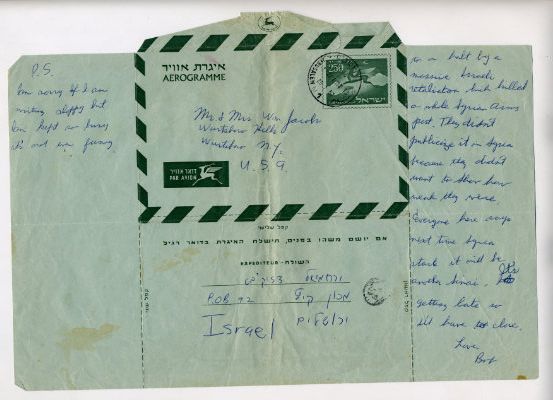 P.S.
I'm sorry if I am
writing sloppy but
I'm kept so busy
it's not even funny
איגרת אויר
AEROGRAMME
250
ישראל
Mr & Mrs Wm Jacobs
N.Y.
U.S.A.
דואר אויר
PAR AVION
קפל שלישי
אם יושם משהו בפנים, תישלח האיגרת בדואר רגיל
השולח-EXPEDITEUR
מכון
P.O.B 92
ירושלים
Israel
קפל שני
to a halt by a
massive Israeli
retaliation which killed
a whole Syrian Arms
post. They didn't
publicize it in Syria
because they didn't
want to show how
weak they were.
Everyone here says
next time Syria
starts it will be
another Sinai. It's
getting late so
I'll have to close.
Love,